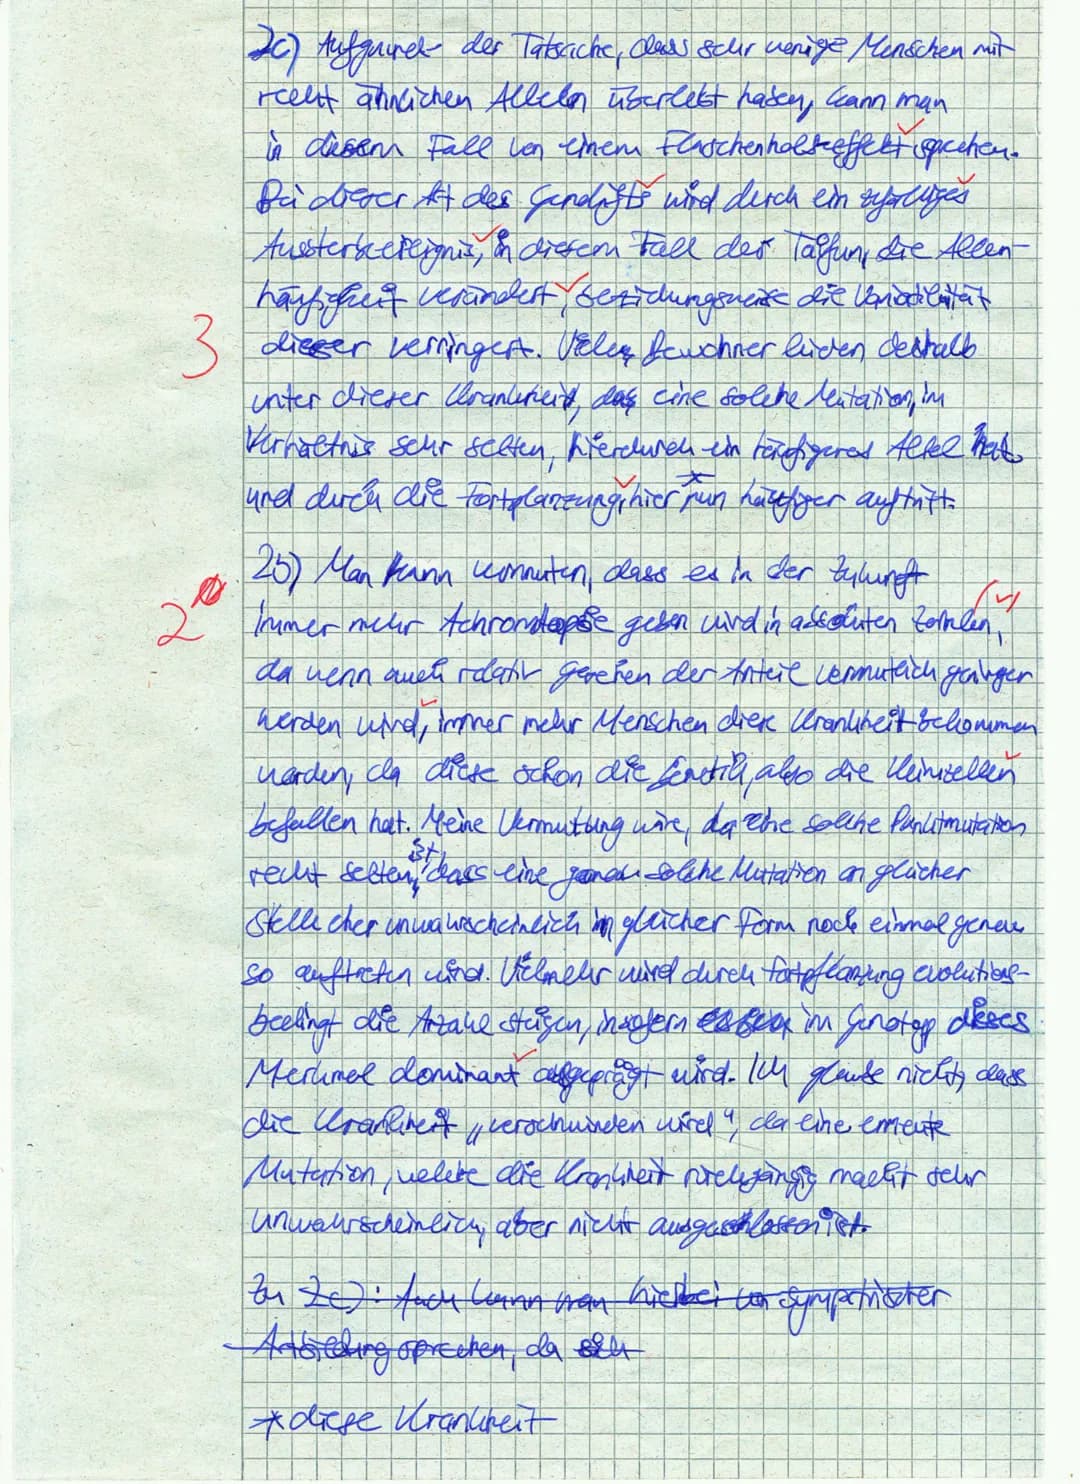 2c) Aufgrund der Tatsache, dass sehr wenige Menschen mit
recht ähnlichen Allelen überlebt haben, kann man
in diesem Fall von einem Flaschenhalseffekt sprechen.
Bei dieser Art des Gendrifts wird durch ein zufälliges
Aussterbeereignis, in diesem Fall der Taifun, die Allen-
häufigkeit verändert, beziehungsweise die Variabilität
3 dieser verringert. Viele Bewohner leiden deshalb
unter dieser Krankheit, das eine solche Mutation, im
Verhältnis sehr selten, hierdurch ein häufigeres Allel hat
und durch die Fortplanzung, hier * nun häufiger auftritt.
2b) Man kann vermuten, dass es in der Zukunft
2 immer mehr Achromatopsie geben wird in absoluten Zahlen,
da wenn auch relativ gesehen der Anteil vermutlich geringer
werden wird, immer mehr Menschen diese Krankheit bekommen
werden, da diese schon die Genetik, also die Keimzellen
befallen hat. Meine Vermutung wäre, da eine solche Punktmutation
recht selten ist, dass eine solche Mutation an gleicher
Stelle eher unwahrscheinlich in gleicher Form noch einmal genau
so auftreten wird. Vielmehr wird durch Fortpflanzung evolutions-
bedingt die Anzahl steigen, insofern im Genotyp dieses
Merkmal dominant ausgeprägt wird. Ich glaube nicht, dass
die Krankheit „verschwinden wird", da eine erneute
Mutation, welche die Krankheit rückgängig macht sehr
unwahrscheinlich, aber nicht ausgeschlossen ist.
Zu 2c): Auch kann man hierbei von sympatrischer
Artbildung sprechen, da sich
* diese Krankheit